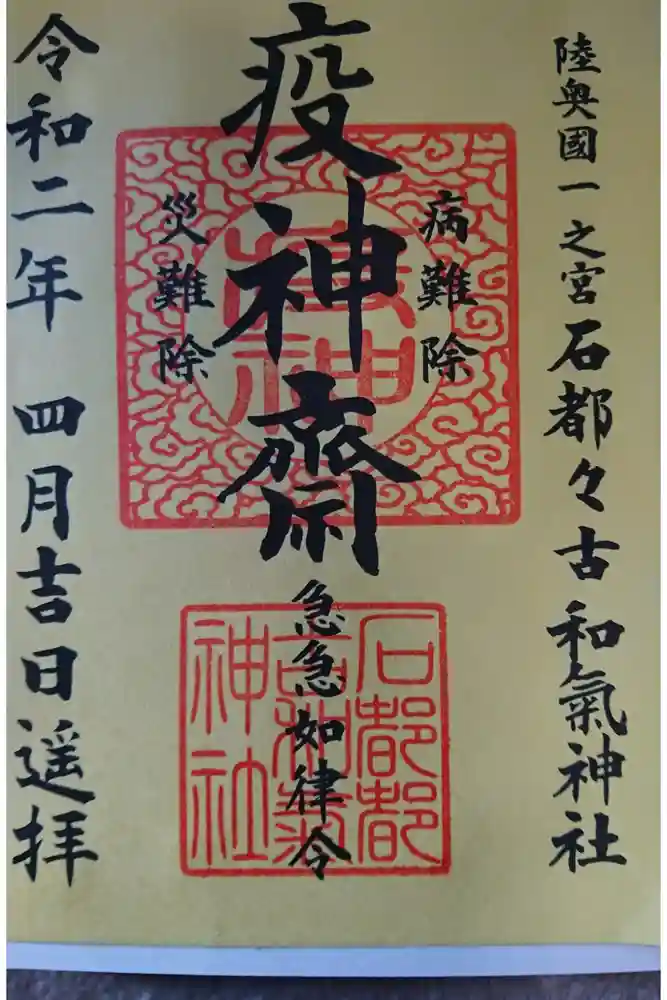 陸奥國一之宮石都々古和氣神社
病難除
疫神齋
災難除
急急如律令
石都都古和氣神社
令和二年 四月吉日遥拝